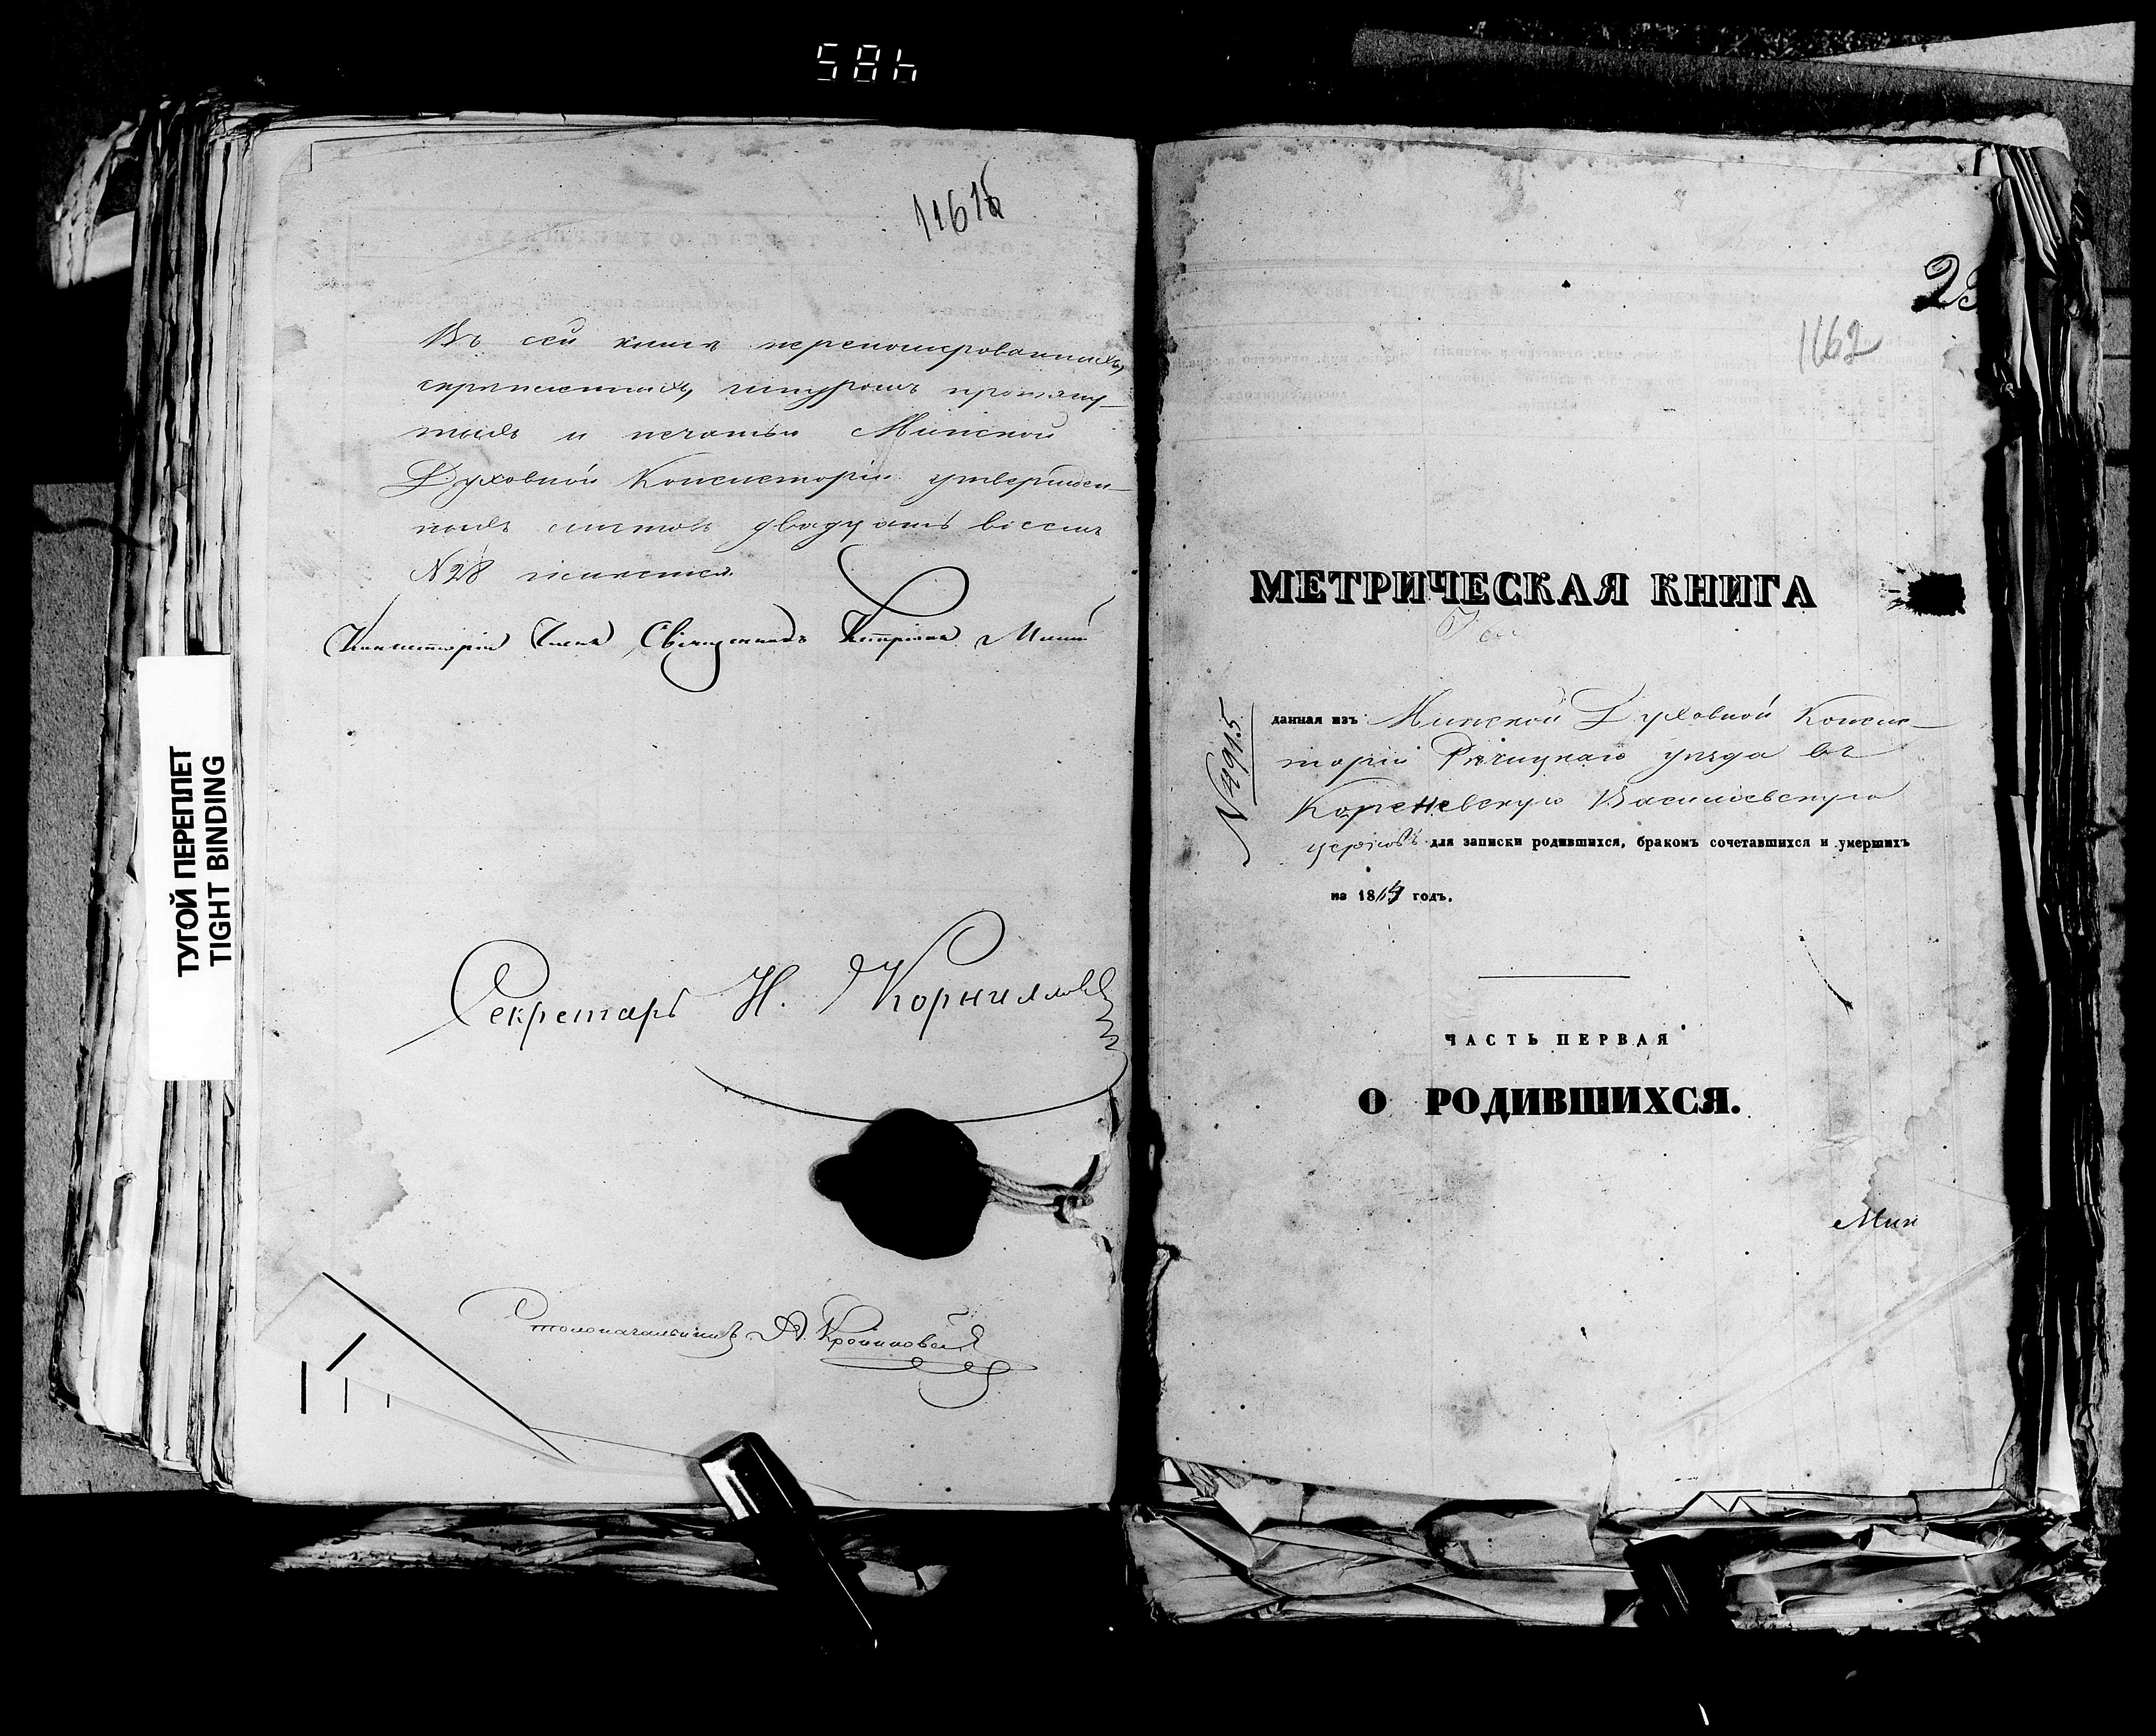 58h
ТУГОЙ ПЕРЕПЛЕТ
TIGHT BINDING
Въ сей книгѣ перенумерованныхъ,
скрѣпленныхъ, шнуромъ протяну-
тыхъ и печатью Минской
Духовной Консисторіи утвержден-
ныхъ листовъ двадцать восемь
N 28 имѣется.
Консисторіи Членъ, Священникъ
Секретарь Н. Корниловъ
Столоначальникъ А.
23
1162
МЕТРИЧЕСКАЯ КНИГА
N 4915
данная изъ Минской Духовной Консис-
торіи Рѣчицкаго уѣзда въ
Кореневскую Васильевскую
церковь для записки родившихся, бракомъ сочетавшихся и умершихъ
на 1864 годъ.
ЧАСТЬ ПЕРВАЯ
О РОДИВШИХСЯ.
Мин